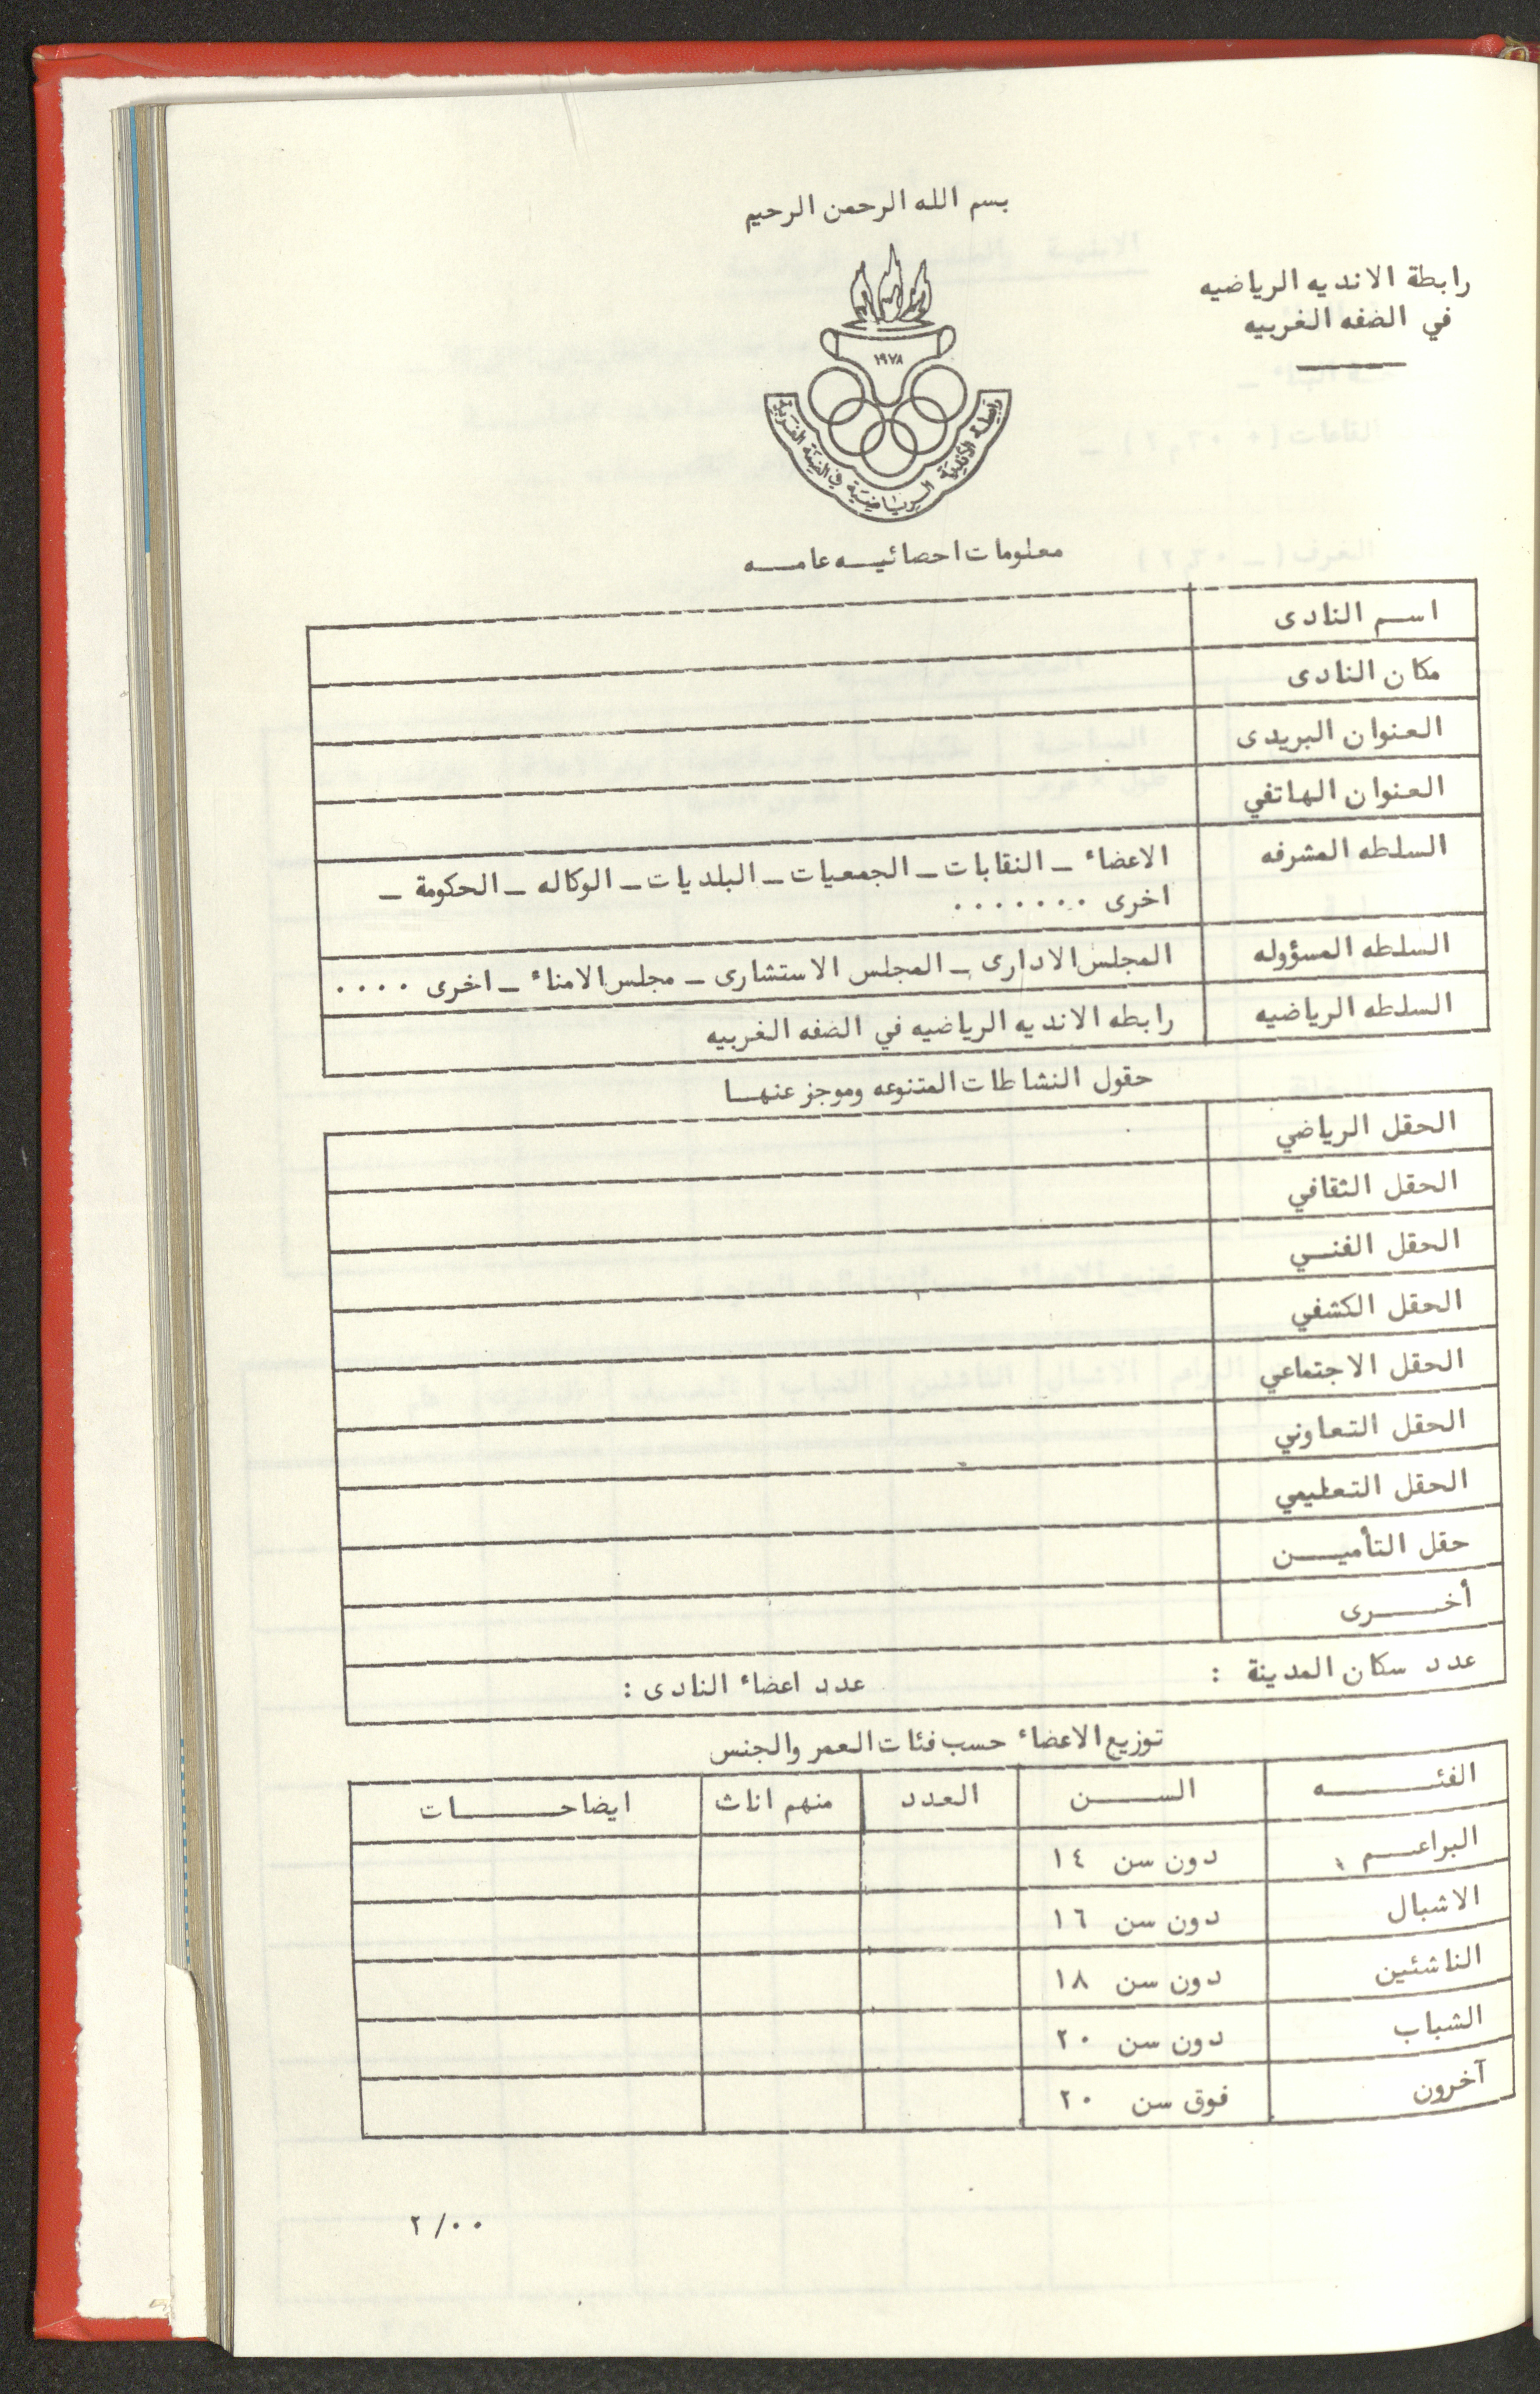 بسم الله الرحمن الرحيم
رابطة الانديه الرياضيه
في الضفه الغربيه
١٩٧٨
رابطة الأندية الرياضية في الضفة الغربية
معلومات احصائيه عامه
اسم النادى
مكان النادى
العنوان البريدى
العنوان الهاتفي
السلطه المشرفه
الاعضاء _ النقابات _ الجمعيات _ البلديات _ الوكاله _ الحكومة _
اخرى .......
السلطه المسؤوله
المجلس الادارى _ المجلس الاستشارى _ مجلس الامناء _ اخرى ....
السلطه الرياضيه
رابطه الانديه الرياضيه في الضفه الغربيه
حقول النشاطات المتنوعه وموجز عنها
الحقل الرياضي
الحقل الثقافي
الحقل الفني
الحقل الكشفي
الحقل الاجتماعي
الحقل التعاوني
الحقل التعليمي
حقل التأمين
أخرى
عدد سكان المدينة : عدد اعضاء النادى :
توزيع الاعضاء حسب فئات العمر والجنس
الفئه السن العدد منهم اناث ايضاحات
البراعم دون سن ١٤
الاشبال دون سن ١٦
الناشئين دون سن ١٨
الشباب دون سن ٢٠
آخرون فوق سن ٢٠
٢/٠٠